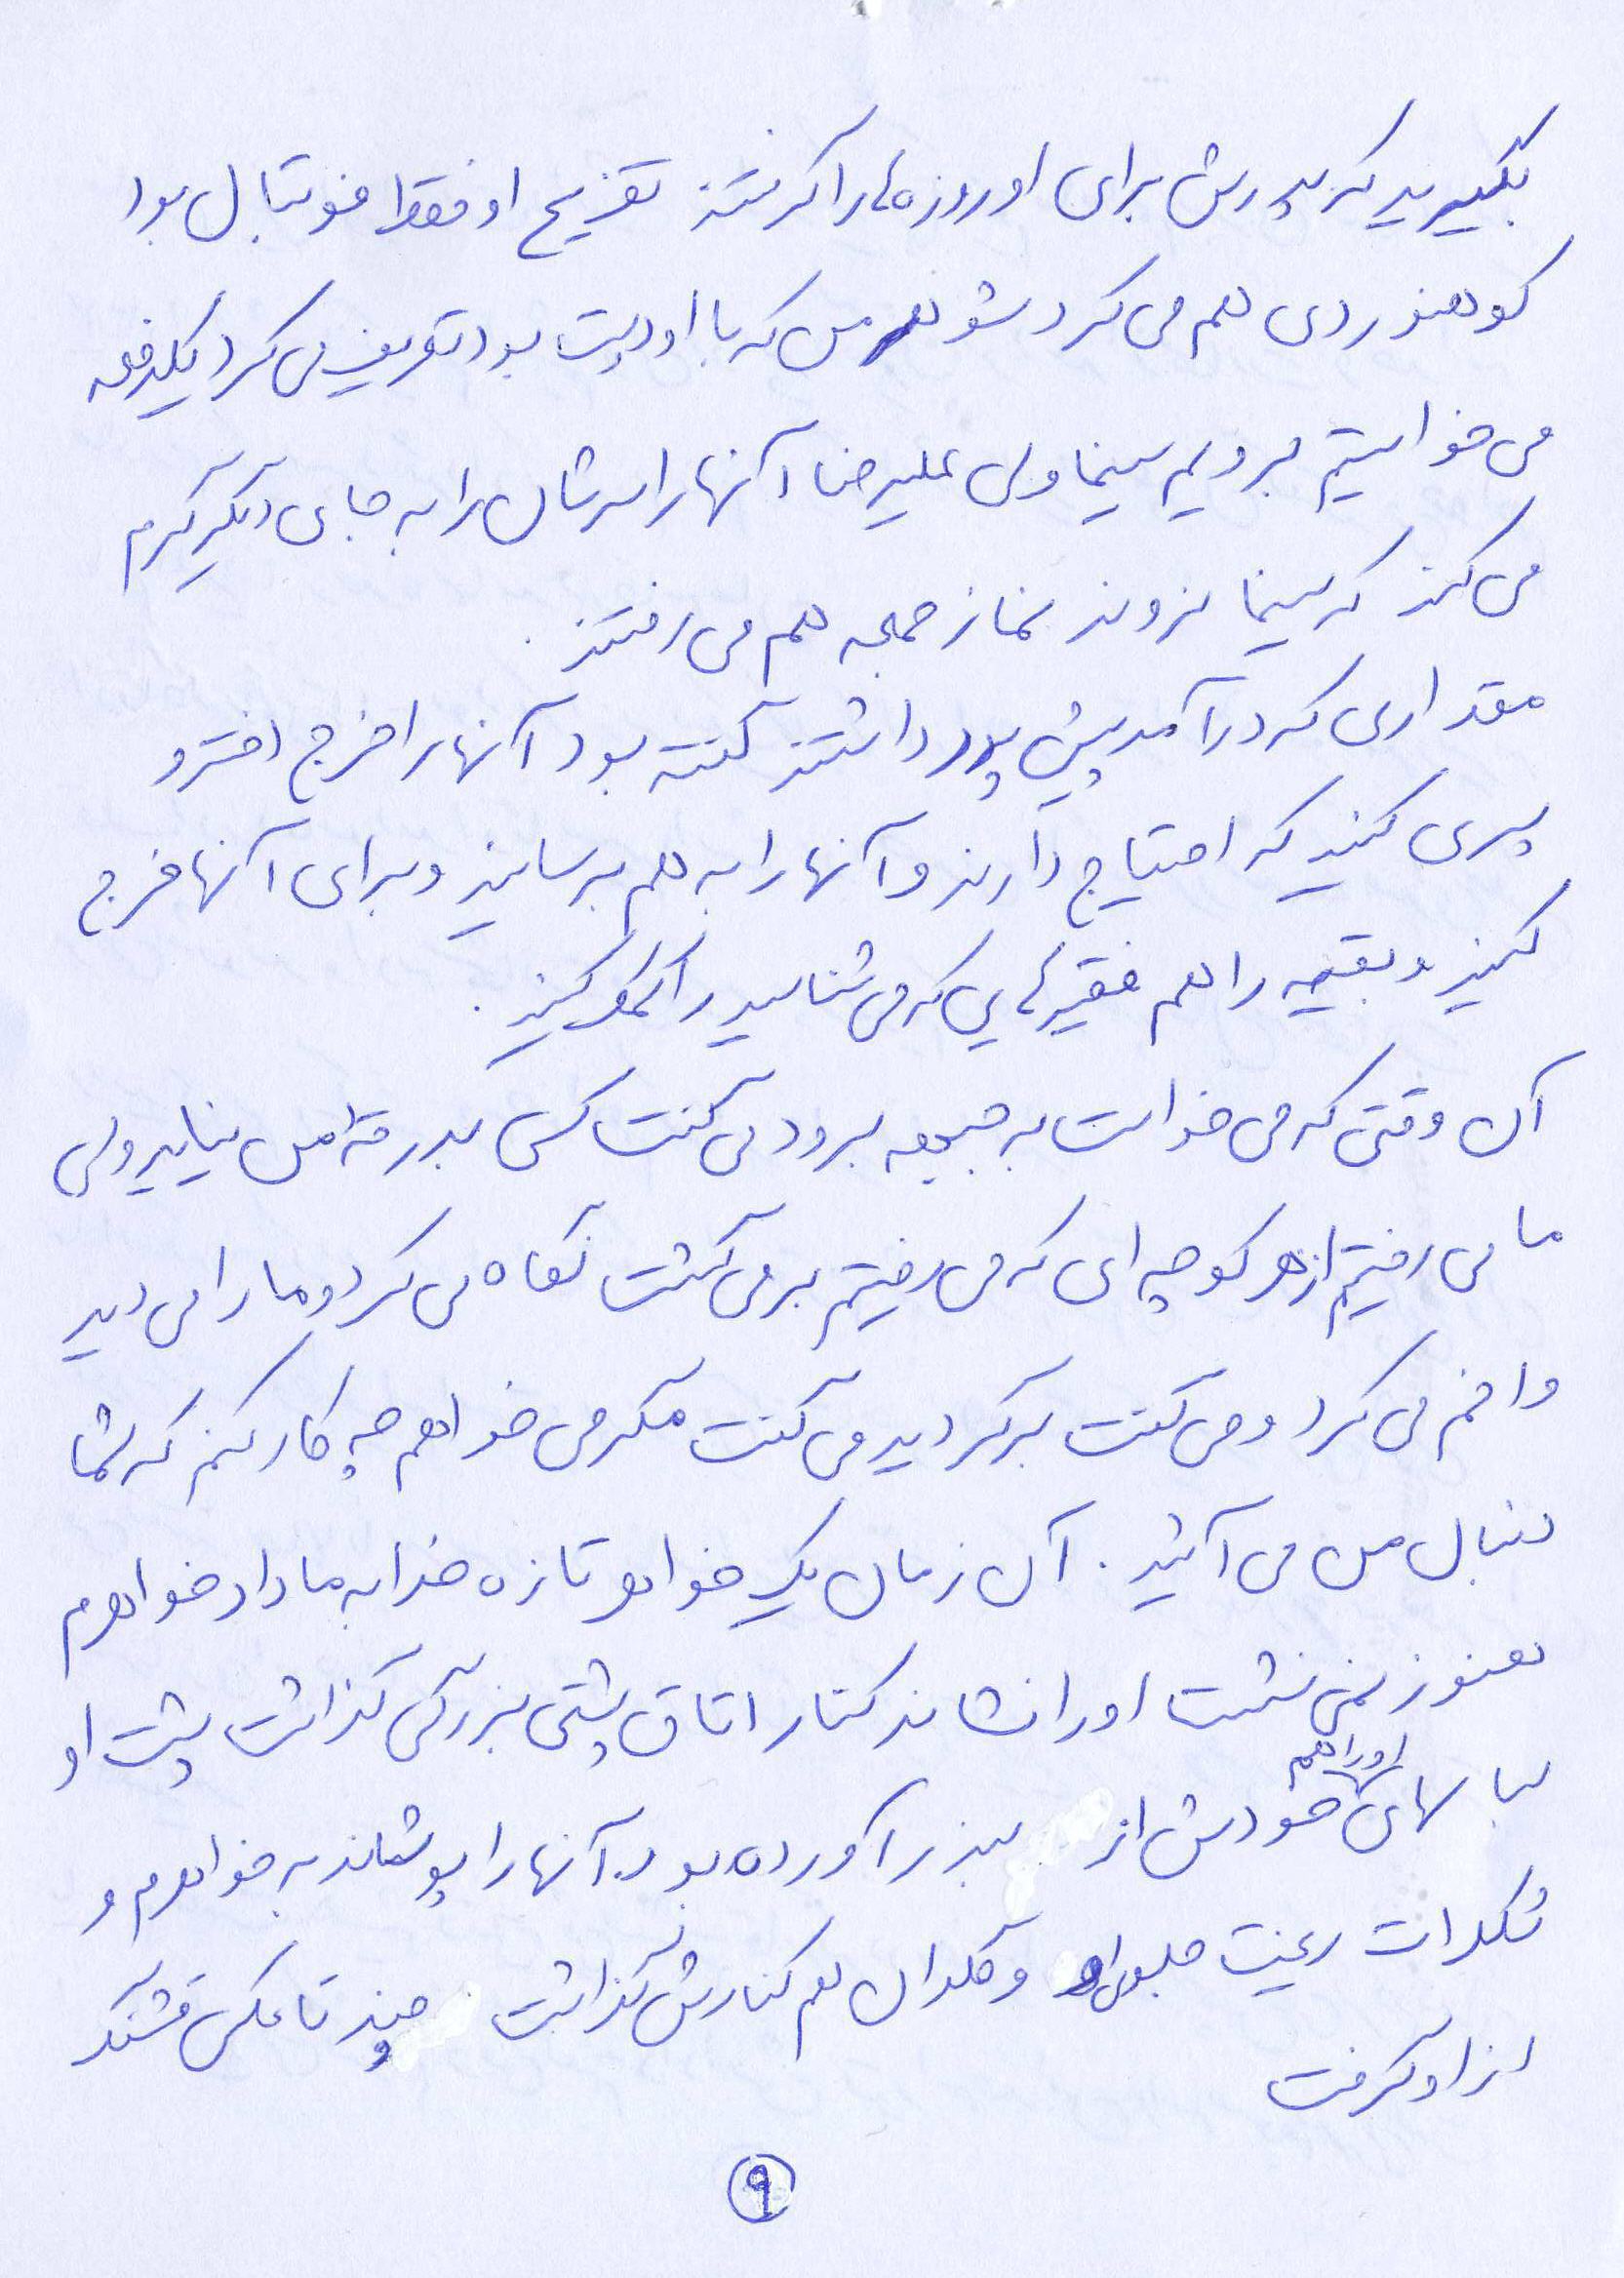 بگیرید که پدرش برای او روزه‌ها را گرفتند تفریح او فقط فوتبال بود
کوهنوردی هم می کرد شوهر من که با او دوست بود تعریف می کرد یکدفعه
می خواستیم برویم سینما ولی علیرضا آنها را سرشان را به جای دیگر گرم
می کند که سینما نروند نماز جمعه هم می رفتند .
مقداری که درآمد پیش پدر داشتند گفته بود آنها را خرج دختر و
پسری کنید که احتیاج دارند و آنها را به هم برسانید و برای آنها خرج
کنید و بقیه را هم فقیرهایی که می شناسید را کمک کنید .
آن وقتی که می خواست به جبهه برود می گفت کسی بدرقه من نیاید ولی
ما می رفتیم از هر کوچه ای که می رفتیم بر می گشت نگاه می کرد و ما را می دید
و اخم می کرد و می گفت برگردید می گفت مگر می خواهم چه کار کنم که شما
دنبال من می آئید . آن زمان یک خواهر تازه خدا به ما داد خواهرم
هنوز نمی نشست او را نشاند کنار اتاق پشتی بزرگی گذاشت پشت او
لباسهای او را هم خودش از بندر آورده بود . آنها را پوشاند به خواهرم و
شکلات ریخت جلوی او و گلدان هم کنارش گذاشت و چند تا عکس قشنگ
از او گرفت
۹